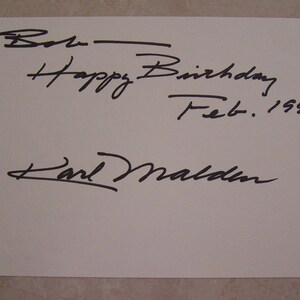 Bob —
Happy Birthday
Feb. 199
Karl Malden